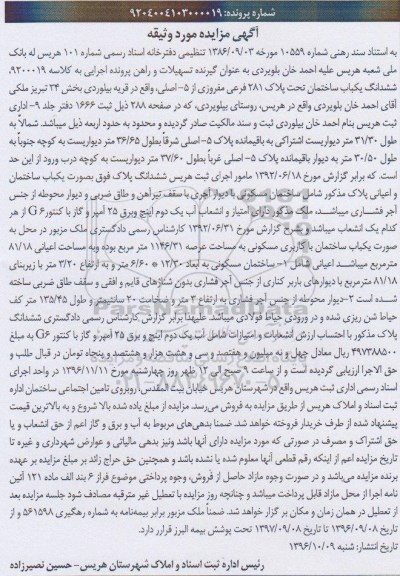 شماره پرونده: ۹۲۰۴۰۰۴۱۰۳۰۰۰۰۱۹
آگهی مزایده مورد وثیقه
به استناد سند رهنی شماره ۱۰۵۵۹ مورخه ۱۳۸۶/۰۹/۰۳ تنظیمی دفترخانه اسناد رسمی شماره ۱۰۱ هریس له بانک
ملی شعبه هریس علیه احمد خان بلوپردی به عنوان گیرنده تسهیلات و راهن پرونده اجرایی به کلاسه ۹۲۰۰۰۱۹،
ششدانگ یکباب ساختمان تحت پلاک ۲۸۱ فرعی مفروزی از ۵- اصلی، واقع در قریه بیلوردی بخش ۲۴ تبریز ملکی
آقای احمد خان بلوپردی واقع در هریس، روستای بیلوردی، که در صفحه ۲۸۸ ذیل ثبت ۱۶۶۶ دفتر جلد ۹- اداری
ثبت هریس بنام احمد خان بیلوردی ثبت و سند مالکیت صادر گردیده و محدود به حدود اربعه ذیل میباشد. شمالاً به
طول ۳۱/۳۰ متر دیواریست اشتراکی به باقیمانده پلاک ۵- اصلی شرقاً بطول ۳۶/۶۵ متر دیواریست به کوچه جنوباً به
طول ۳۰/۵۰ متر به دیوار باقیمانده پلاک ۵- اصلی غرباً بطول ۳۷/۶۰ متر دیواریست به کوچه درب ورود از این حد
است. که برابر گزارش مورخ ۱۳۹۲/۰۶/۱۸ مامور اجرای ثبت هریس ششدانگ پلاک فوق بصورت یکباب ساختمان
و اعیانی پلاک مذکور شامل ساختمان مسکونی با دیوار آجری با سقف تیرآهن و طاق ضربی و دیوار محوطه از جنس
آجر فشاری میباشد، ملک مذکور دارای امتیاز و انشعاب آب یک دوم اینچ وبرق ۲۵ آمپر و گاز با کنتور G۶ از هر
کدام یک انشعاب میباشد و بشرح گزارش مورخ ۱۳۹۲/۰۶/۳۱ کارشناس رسمی دادگستری ملک مزبور در محل به
صورت یکباب ساختمان با کاربری مسکونی به مساحت عرصه ۱۱۴۶/۳۱ متر مربع بوده وبه مساحت اعیانی ۸۱/۱۸
مترمربع میباشد اعیانی شامل ۱- ساختمان مسکونی به ابعاد ۱۲/۳۰ * ۶/۶۰ متر و به ارتفاع ۳/۲۰ متر با زیربنای
۸۱/۱۸ مترمربع با دیوارهای باربر کناری از جنس آجر فشاری بدون شناژهای قایم و افقی و سقف طاق ضربی ساخته
شده است ۲-دیوار محوطه از جنس آجر فشاری به ارتفاع ۲ متر و ضخامت ۲۰ سانتیمتر و طول ۱۳۵/۴۵ متر کف
حیاط شن ریزی شده و در ورودی حیاط فولادی میباشد علیهذا برابر گزارش کارشناس رسمی دادگستری ششدانگ
پلاک مذکور با احتساب ارزش انشعابات و امتیازات شامل آب یک دوم اینچ و برق ۲۵ آمپر و گاز با کنتور G۶ به مبلغ
۴۹۷۳۸۸۵۰۰ ریال معادل چهل و نه میلیون و هفتصد و سی و هشت هزار و هشتصد و پنجاه تومان در قبال طلب و
حق الاجرا ارزیابی گردیده است و از ساعت ۹ صبح الی ۱۲ ظهر روز چهارشنبه مورخ ۱۳۹۶/۱۱/۱۱ در واحد اجرای
اسناد رسمی اداری ثبت هریس واقع در شهرستان هریس خیابان بیت المقدس، روبروی تامین اجتماعی ساختمان اداره
ثبت اسناد و املاک هریس از طریق مزایده به فروش می‌رسد. مزایده از مبلغ یاده شده بالا شروع و به بالاترین قیمت
پیشنهاد شده از طرف خریدار فروخته خواهد شد. ضمنا بدهی‌های مربوط به آب و برق و گاز اعم از حق انشعاب و یا
حق اشتراک و مصرف در صورتی که مورد مزایده دارای آنها باشد ونیز بدهی مالیاتی و عوارض شهرداری و غیره تا
تاریخ مزایده اعم از اینکه رقم قطعی آنها معلوم شده یا نشده باشد و همچنین حق حراج زائد بر مبلغ مزایده بر عهده
برنده مزایده می‌باشد و در صورت وجوه مازاد حاصل از فروش، وجوه پرداختی موضوع فراز ۶ بند الف ماده ۱۲۱ آئین
نامه اجرا از محل مازاد قابل پرداخت میباشد و چنانچه روز مزایده با تعطیل غیر مترقبه مصادف شود جلسه مزایده بعد
از تعطیل در همان زمان و مکان بر گزار خواهد شد. ضمناً ملک مزبور برابر بیمه‌نامه به شماره رهگیری ۵۶۱۵۹۸ و از
تاریخ ۱۳۹۶/۰۹/۰۸ تا تاریخ ۱۳۹۷/۰۹/۰۸ تحت پوشش بیمه البرز قرار دارد.
تاریخ انتشار: شنبه ۱۳۹۶/۱۰/۰۹
رئیس اداره ثبت اسناد و املاک شهرستان هریس- حسین نصیرزاده